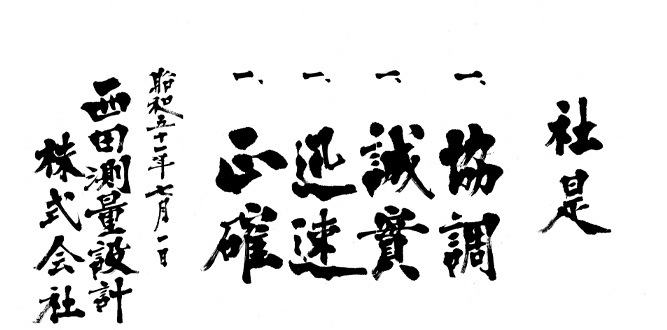 社是
一、協調
一、誠實
一、迅速
一、正確
昭和五十一年七月一日
西田測量設計
株式会社